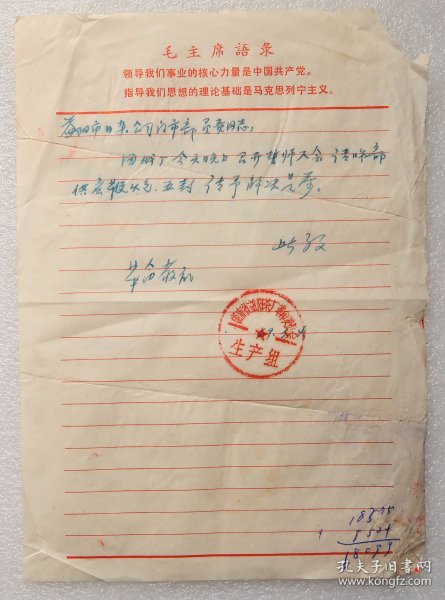 毛主席語录
领导我们事业的核心力量是中国共产党。
指导我们思想的理论基础是马克思列宁主义。
益阳市日杂公司门市部负责同志：
因我厂今天晚上召开誓师大会 请你部
供应鞭火包 五封 请予解决是荷。
此致
革命敬礼
生产组
孔夫子旧书网
www.kongfz.com